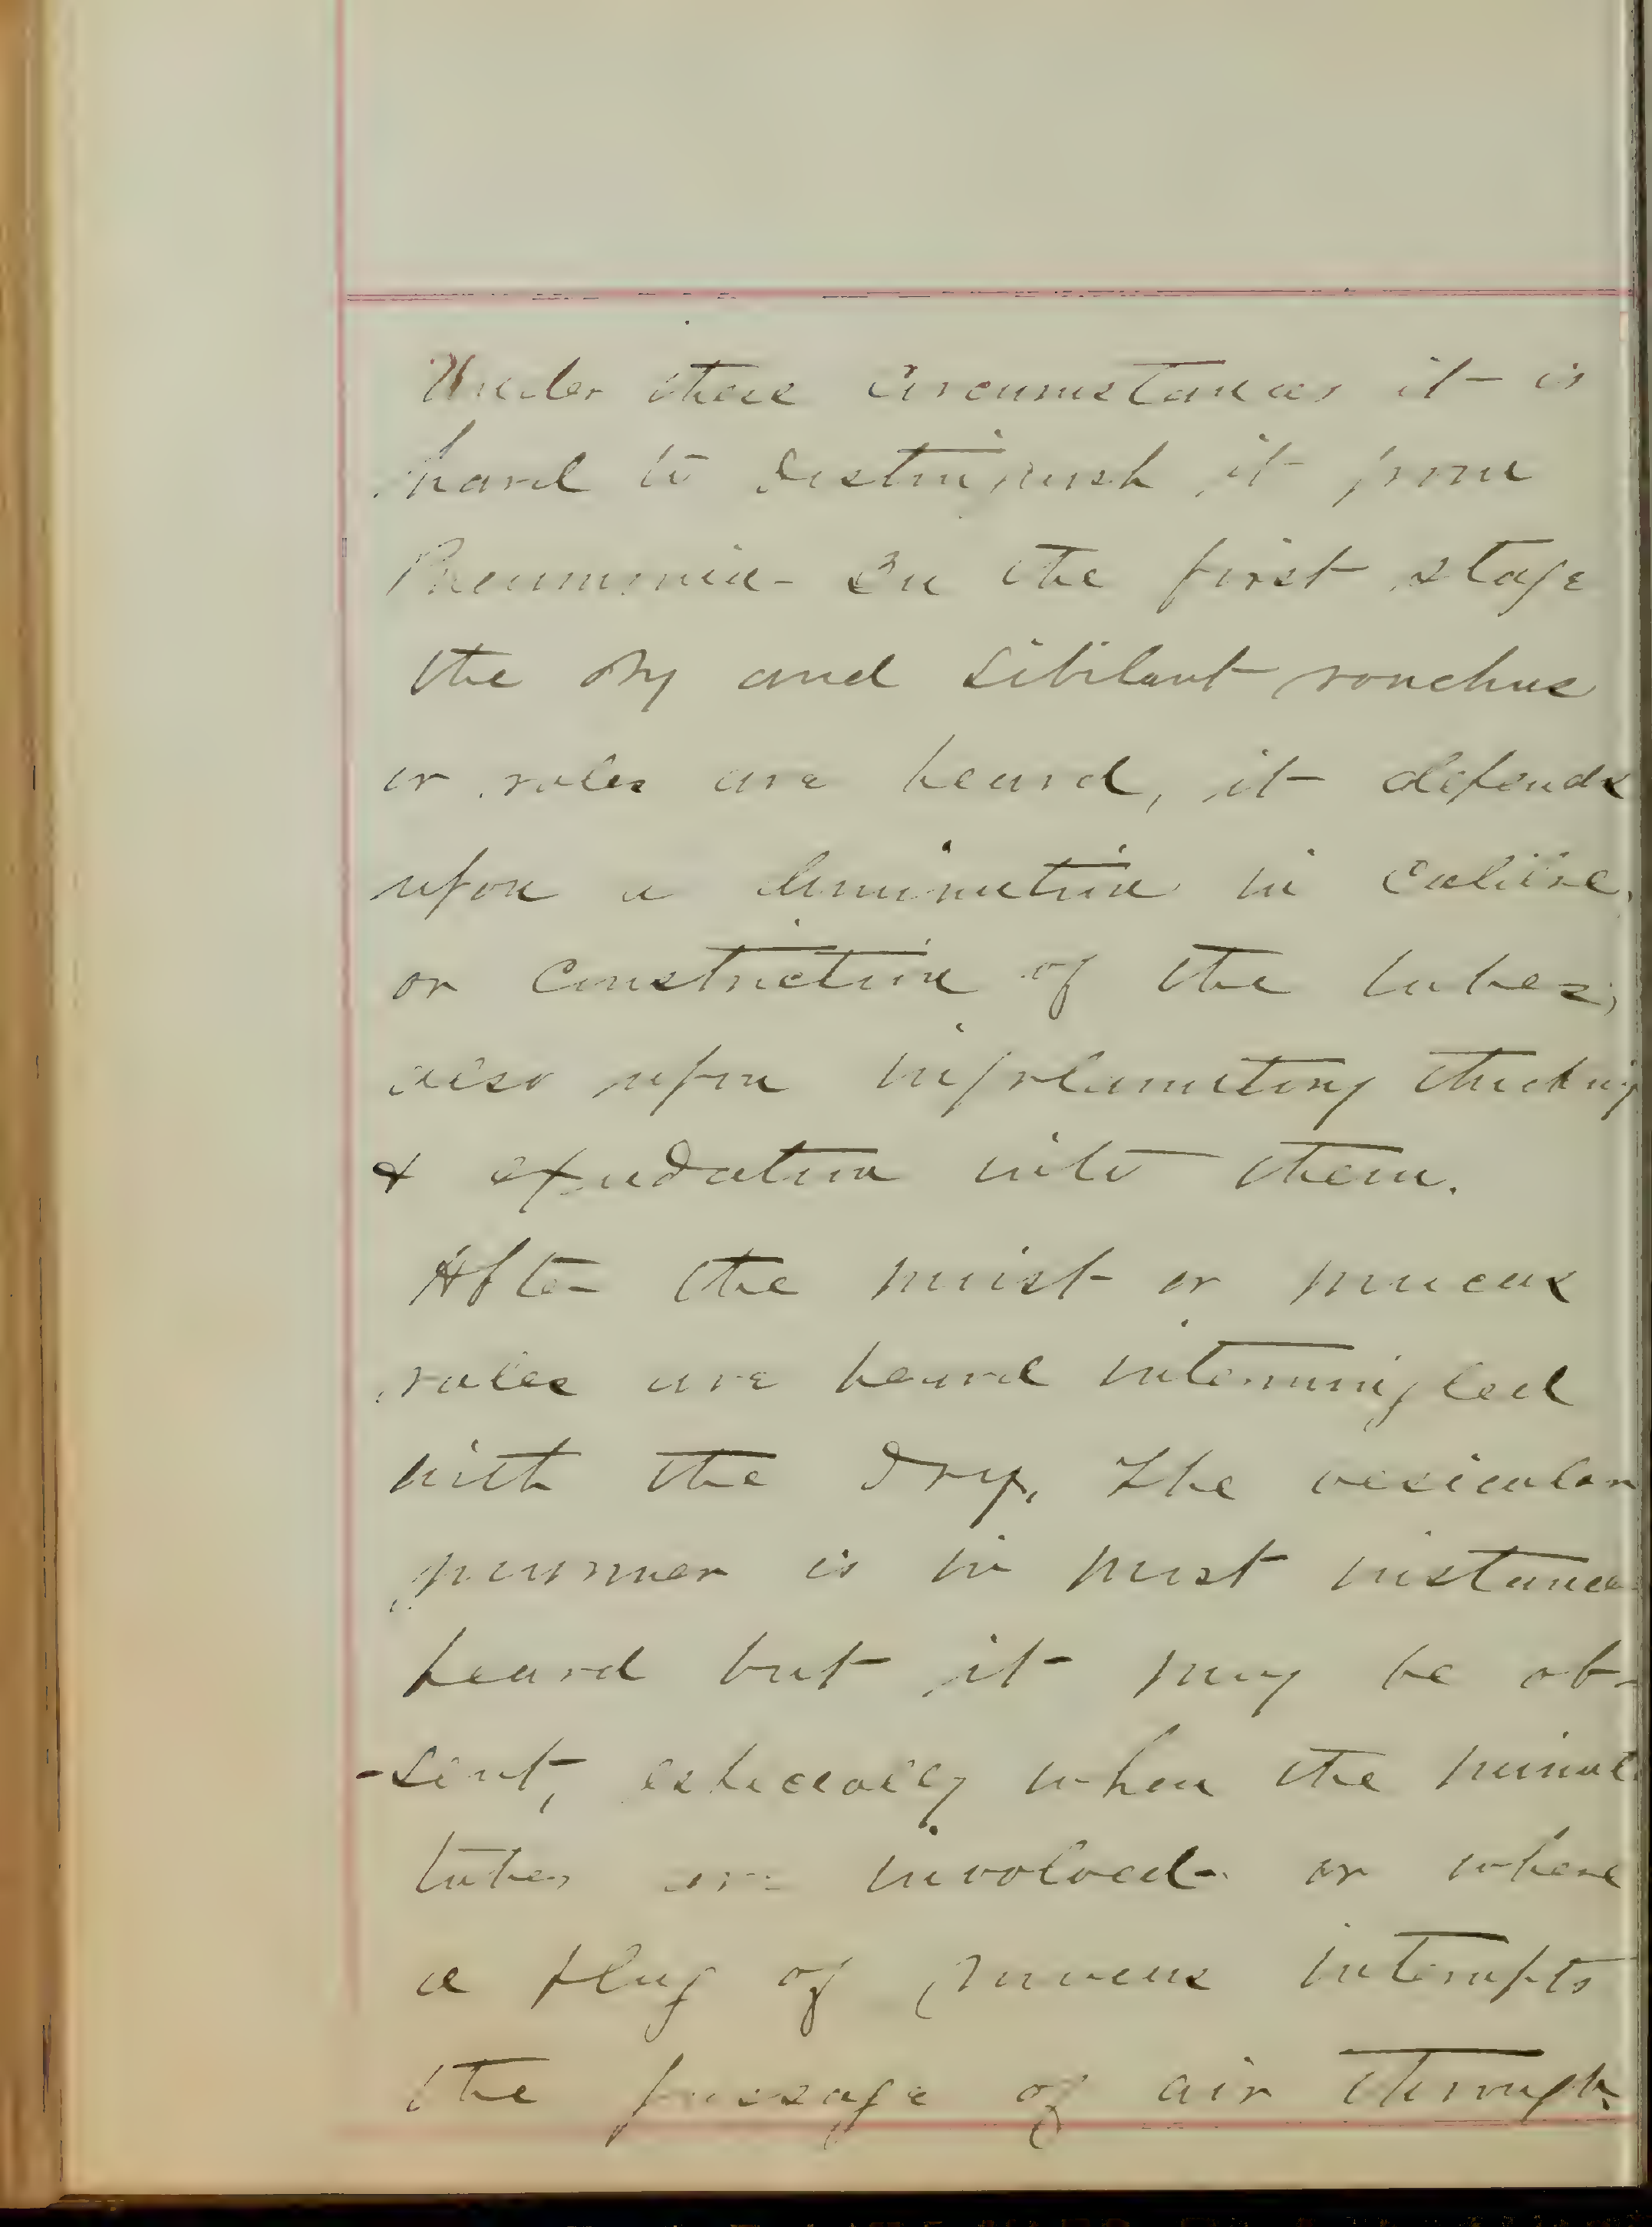 Under these circumstances it is
hard to distinguish it from
Pneumonia - In the first stage
the dry and sibilant ronchus
or rales are heard, it depends
upon a diminution in calibre,
or constriction of the tubes,
also upon inflamating thicking
& exudation into them.
After the moist or mucus
rales are heard intermingled
with the dry, the vesicular
murmer is in most instances
heard but it may be ab-
-sent, especially when the minute
tubes are involved - or where
a plug of mucus interrupts
the passage of air through